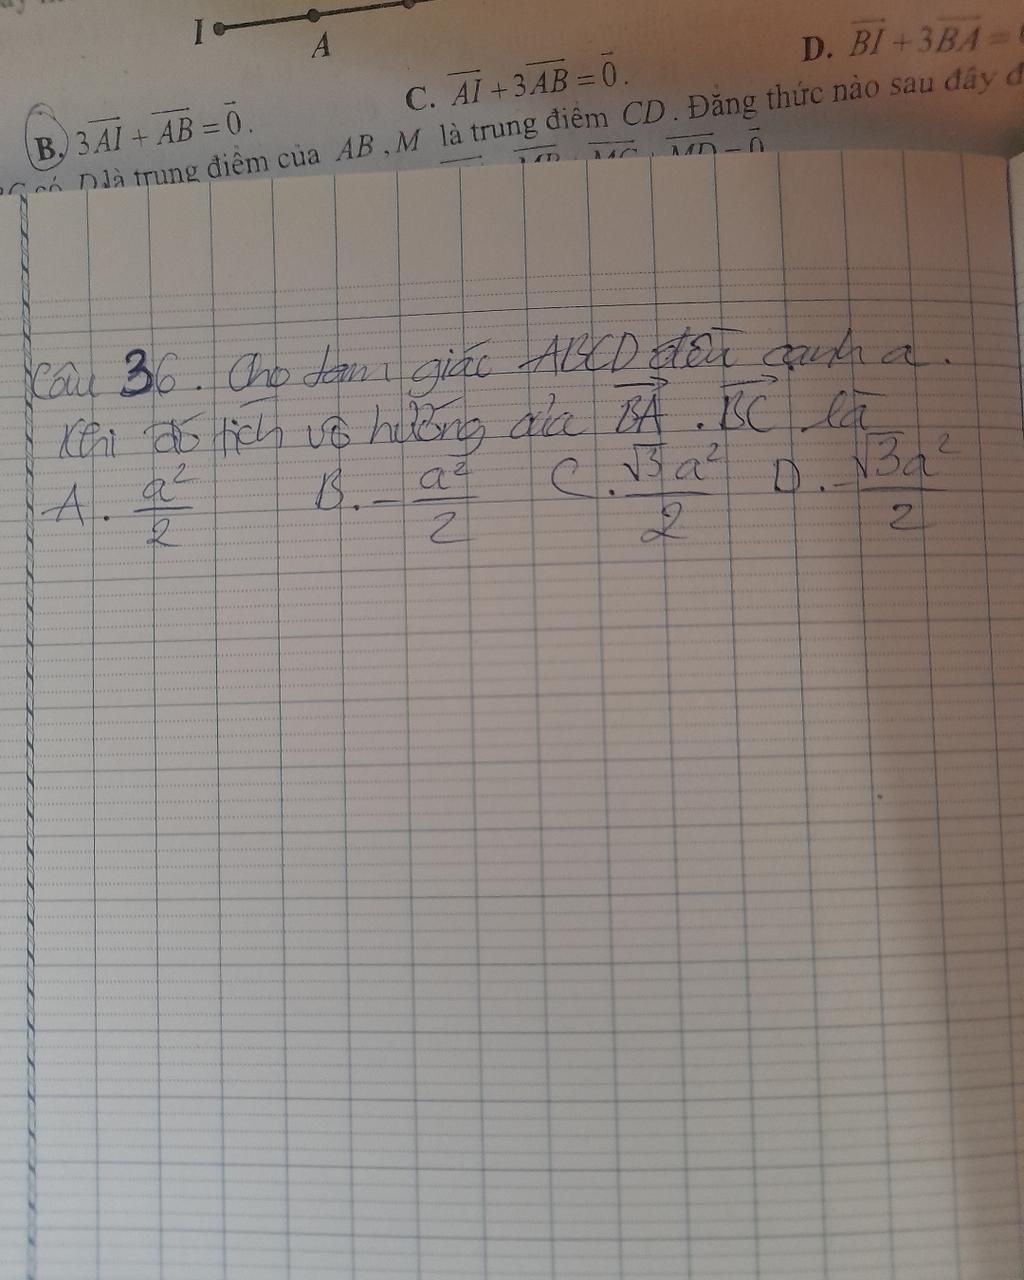 I
A
B. 3\overline{AI} + \overline{AB} = \overline{0}.
C. \overline{AI} + 3\overline{AB} = \overline{0}.
D. \overline{BI} + 3\overline{BA} =
có D là trung điểm của AB, M là trung điểm CD. Đẳng thức nào sau đây đ
Câu 36. Cho tam giác ABCD đều cạnh a.
Khi đó tích vô hướng của \overrightarrow{BA} . \overrightarrow{BC} là
A. \frac{a^2}{2} B. -\frac{a^2}{2} C. \frac{\sqrt{3}a^2}{2} D. -\frac{\sqrt{3}a^2}{2}